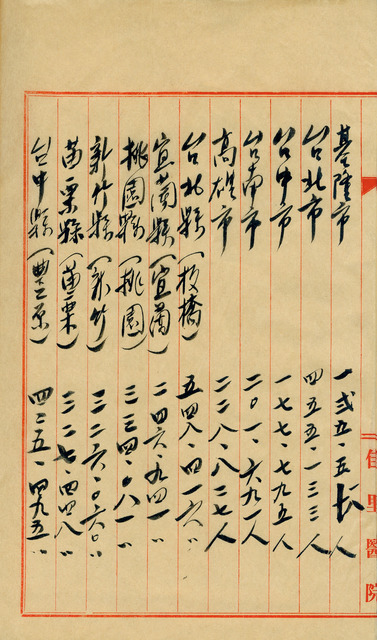 基隆市 一弍五.五 人
台北市 四五五.一三三人
台中市 一七七.七九五人
台南市 二〇一.六九一人
高雄市 二二八.八二七人
台北縣(板橋) 五四八.四一六〃
宜蘭縣(宜蘭) 二四六.九四一〃
桃園縣(桃園) 三三四.〇八一〃
新竹縣(新竹) 三二六.〇六〇〃
苗栗縣(苗栗) 三二七.四四八〃
台中縣(豐原) 四二五.四九五〃
佳里醫院